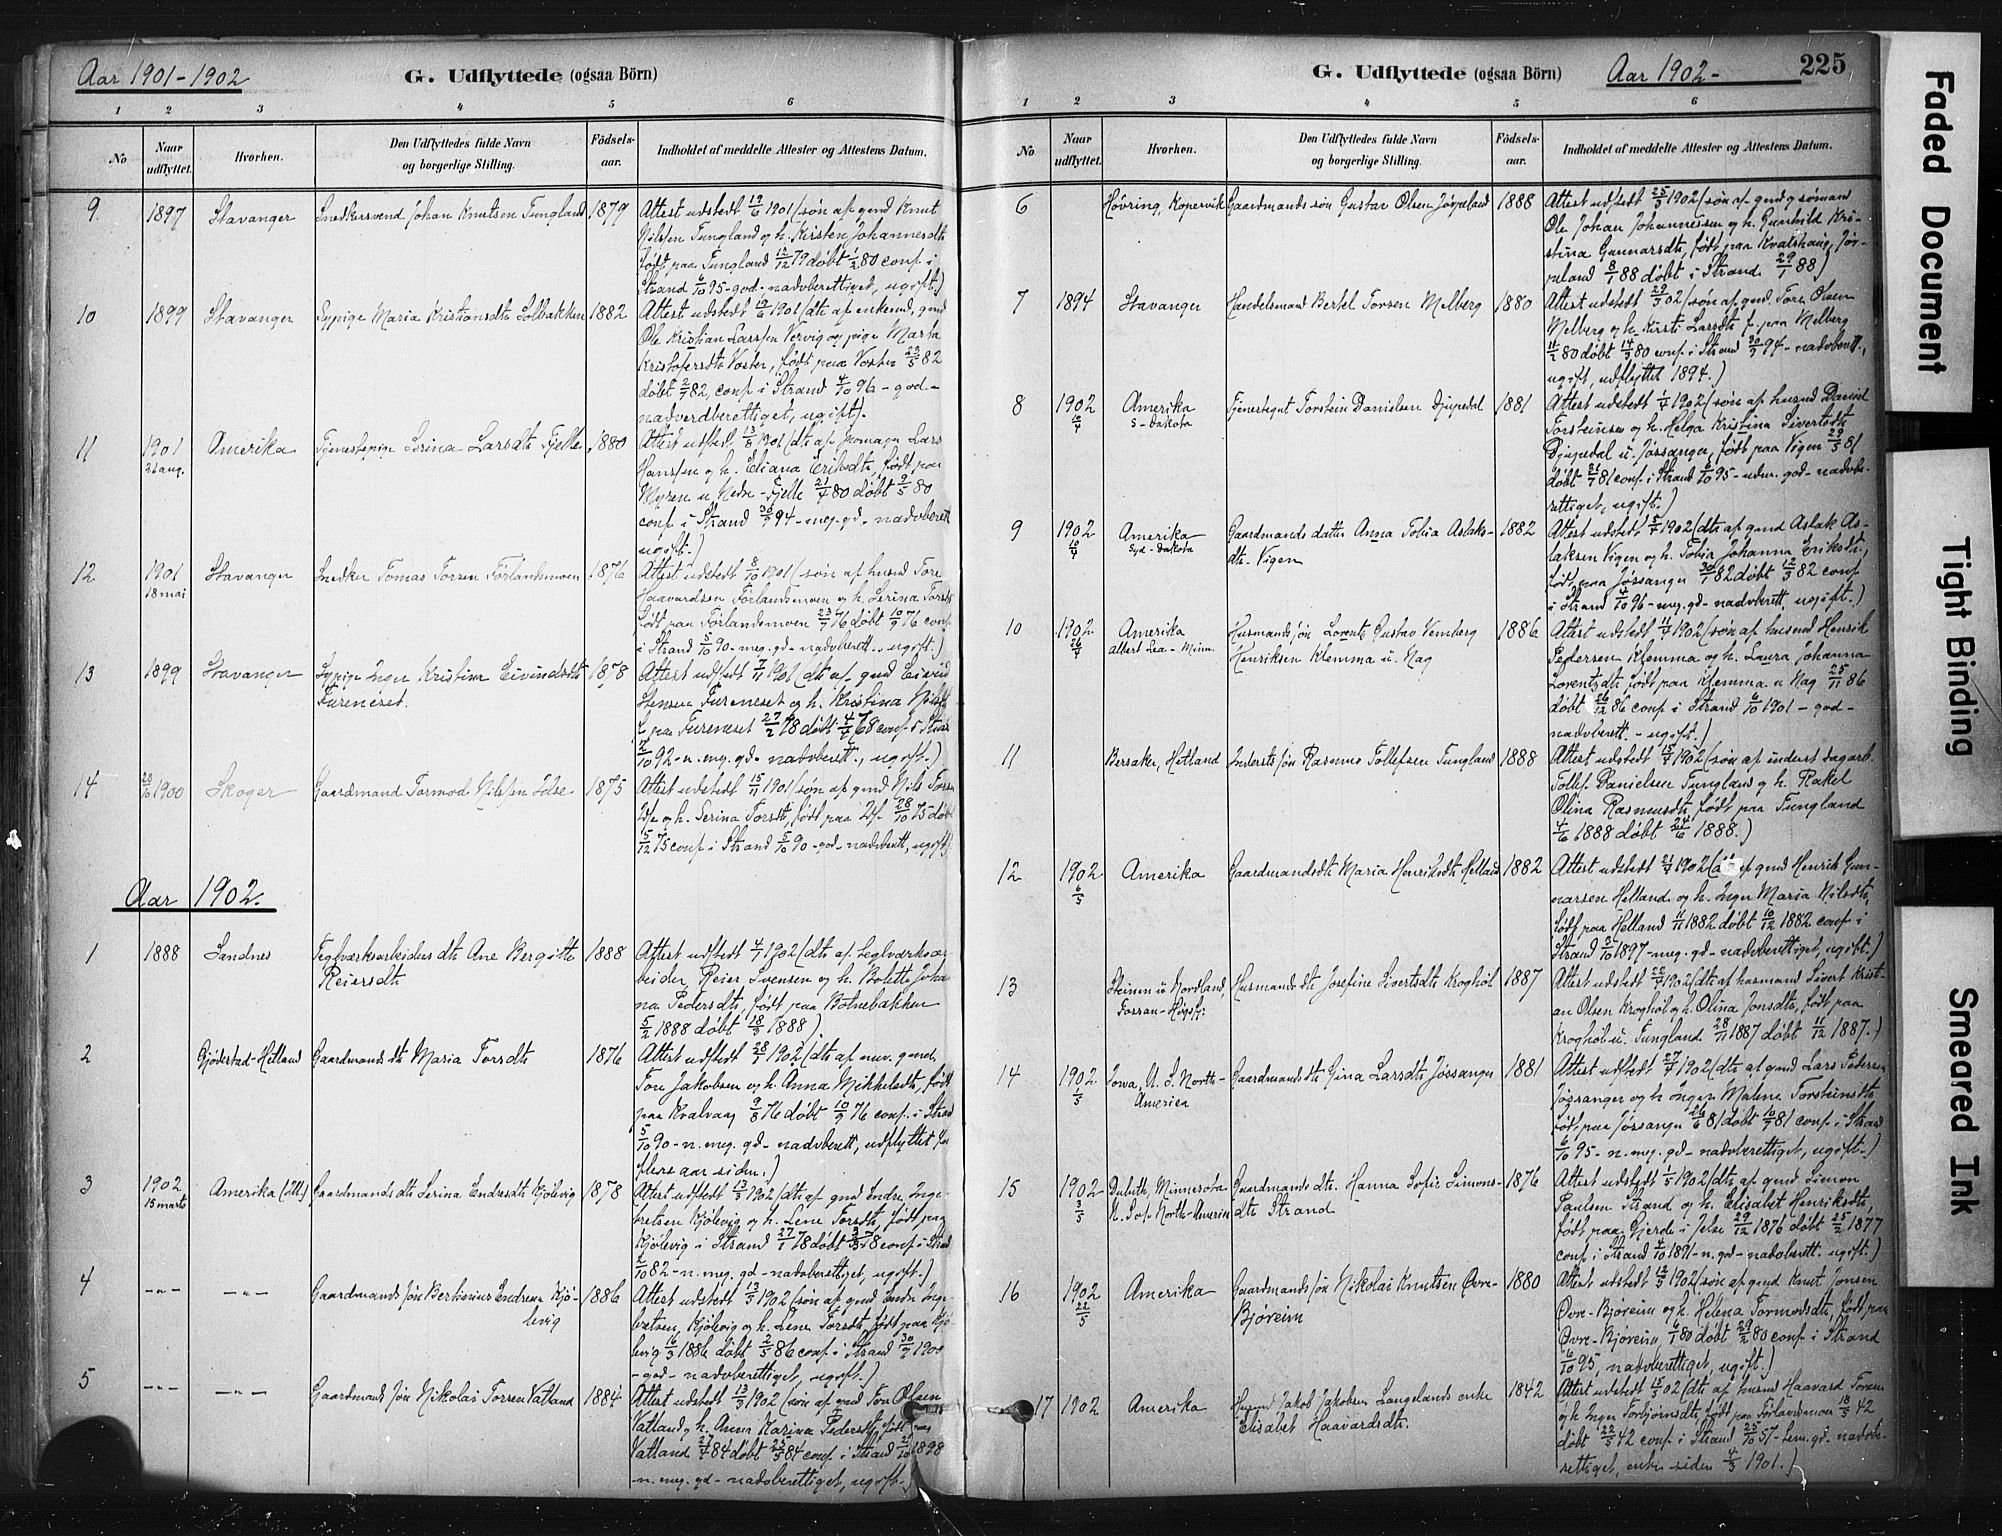 Aar 1901-1902
G. Udflyttede (ogsaa Börn)
1 2 3 4 5 6
No
Naar udflyttet.
Hvorhen.
Den Udflyttedes fulde Navn
og borgerlige Stilling.
Födsels-
aar.
Indholdet af meddelte Attester og Attestens Datum.
9 1897 Stavanger Snedkersvend Johan Knutsen Tungland 1879 Attest udstedt 19/6 1901 (søn af gmd Knut
Nilssen Tungland og h. Kirsten Johannesdtr
født paa Tungland 12/12 79 døbt 1/2 80 conf. i
Strand 6/10 95 - god - nadvberettiget, ugift.)
10 1899 Stavanger Sypige Maria Kristiansdtr Solbakken 1882 Attest udstedt 19/6 1901 (dtr af enkemd, gmd
Ole Kristian Larssen Vervig og pige Marta
Kristofersdtr Voster, født paa Voster 23/5 82
døbt 2/7 82, conf. i Strand 4/10 96 - god -
nadverdberettiget, ugift).
11 1901 Amerika Tjenestepige Serina Larsdtr Fjelle 1880 Attest udstedt 13/8 1901 (dtr af Lars
21 aug. Hanssen og h. Eliana Eriksdtr, født paa
Myren u. Nedre-Fjelle 21/4 80 døbt 9/5 80
conf. i Strand 30/9 94 - meg. gd - nadvberett
ugift.)
12 1901 Stavanger Snedker Tomas Torsen Förlandsmoen 1876 Attest udstedt 8/10 1901 (søn af husmd Tore
18 mai Haavardsen Förlandsmoen og h. Serina Torsdtr
født paa Förlandsmoen 23/7 76 døbt 10/9 76 conf
i Strand 5/10 90 - meg. gd - nadvberett., ugift.)
13 1899 Stavanger Sypige Inger Kristina Eivindsdtr 1878 Attest udstedt 7/11 1901 (dtr af gmd Eivind
Fureneset. Stensen Fureneset og h. Kristina
f. paa Fureneset 27/2 78 døbt 4/4 78 conf i Strand
2/10 92 - n. meg. gd - nadvberett., ugift.)
14 28/10 1900 Skoger Gaardmand Tormod Nilssen Idse 1875 Attest udstedt 15/11 1901 (søn af gmd Nils Torsen
Idse og h. Serina Torsdtr, født paa Idse 28/10 75 døbt
5/12 75 conf i Strand 5/10 90 - god - nadvberett, ugift)
Aar 1902.
1 1888 Sandnes Teglverksarbeiders dtr Ane Bergitte 1888 Attest udstedt 4/1 1902 (dtr af teglværksar-
Reiersdtr beider Reier Svensen og h. Bolette Johan-
na Pedersdtr, født paa Botnebakken
5/2 1888 døbt 18/3 1888)
2 Gjödestad-Hetland Gaardmands dtr Maria Torsdtr 1876 Attest udstedt 28/1 1902 (dtr af nuv. gmd.
Tore Jakobsen og h. Anna Mikkelsdtr, født
paa Kvalvaag 9/8 76 døbt 10/9 76 conf. i Strand
5/10 90 - n. meg. gd - nadvberett, udflyttet for
flere aar siden.)
3 1902 Amerika (Ill.) Gaardmands dtr Serina Endresdtr Kjölevig 1878 Attest udstedt 13/3 1902 (dtr af gmd Endre Inge-
15 marts bretsen Kjölevig og h. Lene Torsdtr, født paa
Kjölevig i Strand 27/1 78 døbt 3/3 78 conf i Strand
2/10 82 - n. meg. gd - nadvberettiget, ugift.)
4 -"- -"- Gaardmands søn Bertinius Endresen Kjö- 1886 Attest udstedt 13/3 1902 (søn af gmd Endre Inge-
levig bretsen, Kjölevig og h. Lene Torsdtr, født paa Kjö-
levig 6/3 1886 døbt 2/5 86 conf. i Strand 30/9 1900
- god - nadvberettiget, ugift.)
5 -"- -"- Gaardmands søn Nikolai Torsen Vatland 1884 Attest udstedt 13/3 1902 (søn af gmd Tore Olsen
Vatland, h. Anna Karina Pedersdtr, født paa
Vatland 27/4 84 døbt 25/5 84 conf. i Strand 1898
- n. meg. gd - nadvberettiget, ugift.)
G. Udflyttede (ogsaa Börn)
Aar 1902-
225
1 2 3 4 5 6
No.
Naar udflyttet.
Hvorhen.
Den Udflyttedes fulde Navn
og borgerlige Stilling.
Födsels-
aar.
Indholdet af meddelte Attester og Attestens Datum.
6 Hövring, Kopervik Gaardmands søn Gustav Olsen Jörpeland 1888 Attest udstedt 25/3 1902 (søn af gmd og sømand
Ole Johan Johannessen og h. Gunhild Kri-
stina Gunnarsdtr, født paa Kvalshaug, Jör-
peland 8/1 88 døbt i Strand 29/1 88)
7 1894 Stavanger Handelsmand Bertel Torsen Melberg 1880 Attest udstedt 29/3 02 (søn af gmd. Tore Olsen
Melberg og h. Kirsti Larsdtr f. paa Melberg
11/2 80 døbt 14/3 80 conf i Strand 30/9 94 - nadvberett.,
ugift, udflyttet 1894.)
8 1902 Amerika Tjenestegut Torstein Danielsen Djupedal 1881 Attest udstedt 1/4 1902 (søn af husmd Daniel
S-Dakota Torsteinsen og h. Helga Kristina Sivertsdtr
Djupedal u. Jössanger, født paa Vigen 29/5 81
døbt 31/7 81 conf i Strand 6/10 95 - udm. god - nadvbe-
rettiget, ugift.)
9 1902 Amerika Gaardmands datter Anna Tobia Aslaks- 1882 Attest udstedt 5/4 1902 (dtr af gmd Aslak As-
10/4 Syd-Dakota dtr Vigen laksen Vigen og h. Tobia Johanna Eriksdtr,
født paa Jössanger 30/1 82 døbt 12/3 82 conf
i Strand 4/10 96 - meg. gd - nadvberett, ugift.)
10 1902 Amerika Husmands søn Lorents Gustav Vemberg 1886 Attest udstedt 11/4 1902 (søn af husmd Henrik
26/4 Albert Lea - Minn. Henriksen Klemma u. Nag Pedersen Klemma og h. Laura Johanna
Lorentzdtr født paa Klemma u Nag 25/11 86
døbt 26/12 86 conf i Strand 6/10 1901 - god -
nadvberett. - ugift.)
11 Bersaker, Hetland Inderst søn Rasmus Tollefsen Tungland 1888 Attest udstedt 15/4 1902 (søn af inderst dagarb.
Tollef Danielsen Tungland og h. Rakel
Olina Rasmusdtr, født paa Tungland
4/6 1888 døbt 24/6 1888.)
12 1902 Amerika Gaardmandsdtr Maria Henriksdtr Helland 1882 Attest udstedt 21/4 1902 (dtr af gmd Henrik Gun-
6/5 narsen Helland og h. Inger Maria Nilsdtr,
født paa Helland 11/11 1882 døbt 10/12 1882 conf i
Strand 3/10 1897 - meg. gd - nadvberettiget, ugift.)
13 i Nordland, Husmands dtr Josefine Sivertsdtr Kroghöl 1887 Attest udstedt 22/4 1902 (dtr af husmand Sivert Kristi-
Fossan-Högsfj: an Olsen Kroghöl og h. Olina Jonsdtr, født paa
Kroghöl u. Tungland 28/11 1887 døbt 11/12 1887.)
14 1902 Iowa, U. S. North- Gaardmands dtr Gina Larsdtr Jössanger 1881 Attest udstedt 27/4 1902 (dtr af gmd Lars Pedersen
America Jössanger og h Inger Malene Torsteinsdtr
født paa Jössanger 26/6 81 døbt 10/7 81 conf. i Strand
6/10 95 - n. meg. gd - nadvberettiget, ugift.)
15 1902 Duluth, Minnesota Gaardmands dtr. Hanna Sofie Simons- 1876 Attest udstedt 1/5 1902 (dtr af gmd Simon
3/5 U. S. of North-America dtr Strand Paulsen Strand og h. Elisabet Henriksdtr,
født paa Gjerde i Jelse 29/12 1876 døbt 25/2 1877
conf i Strand 4/10 1891 - n. gd - nadvberett. ugift.)
16 1902 Amerika Gaardmands søn Nikolai Knutsen Øvre- 1880 Attest udstedt 12/5 1902 (søn af gmd Knut Jonsen
22/5 Björeim Øvre-Björeim og h. Helena Tormodsdtr, født paa
Øvre-Björeim 6/1 80 døbt 29/2 80 conf. i Strand
6/10 95, nadvberettiget, ugift.)
17 1902 Amerika Husmd Jakob Jakobsen Langelands enke 1842 Attest udstedt 15/5 02 (dtr af husmd Haavard Torsen
Elisabet Haavardsdtr. og h. Inger Torbjörnsdtr, født paa Förlandsmoen 18/5 42
døbt 22/5 42 conf. i Strand 25/10 57 - tem. gd. - nadvbe-
rettiget, enke siden 4/3 1901.)
Faded Document
Tight Binding
Smeared Ink